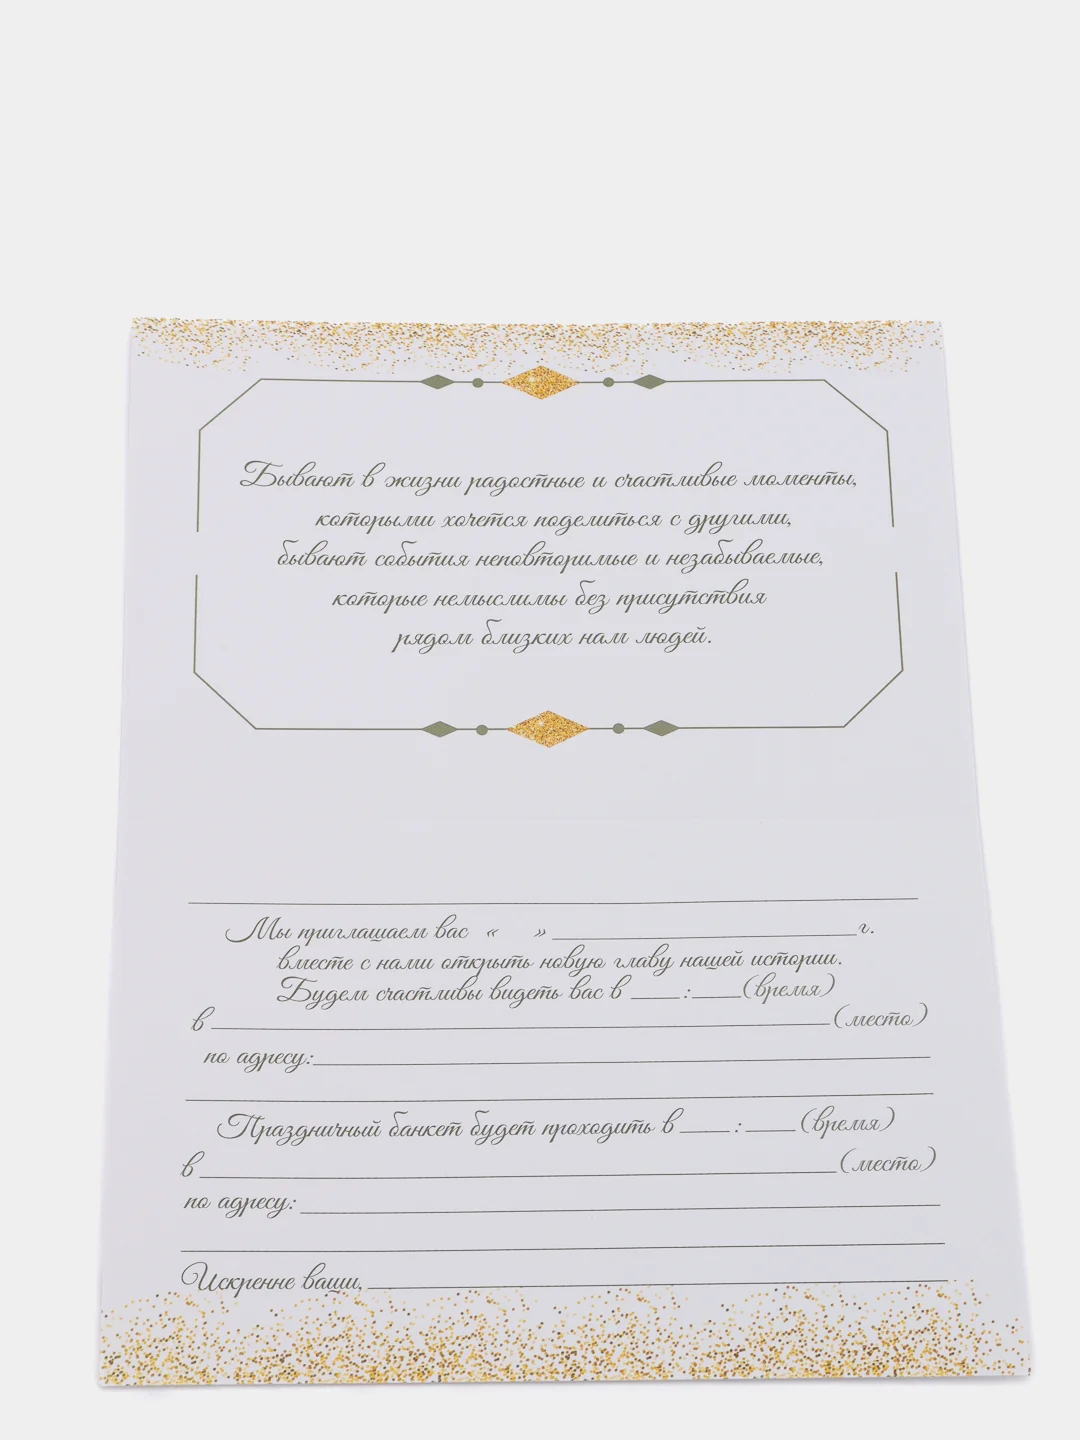 Бывают в жизни радостные и счастливые моменты,
которыми хочется поделиться с другими,
бывают события неповторимые и незабываемые,
которые немыслимы без присутствия
рядом близких нам людей.
Мы приглашаем вас « » ____________г.
вместе с нами открыть новую главу нашей истории.
Будем счастливы видеть вас в ___:___(время)
в ____________(место)
по адресу:____________
Праздничный банкет будет проходить в ___:___(время)
в ____________(место)
по адресу:____________
Искренне ваши,____________